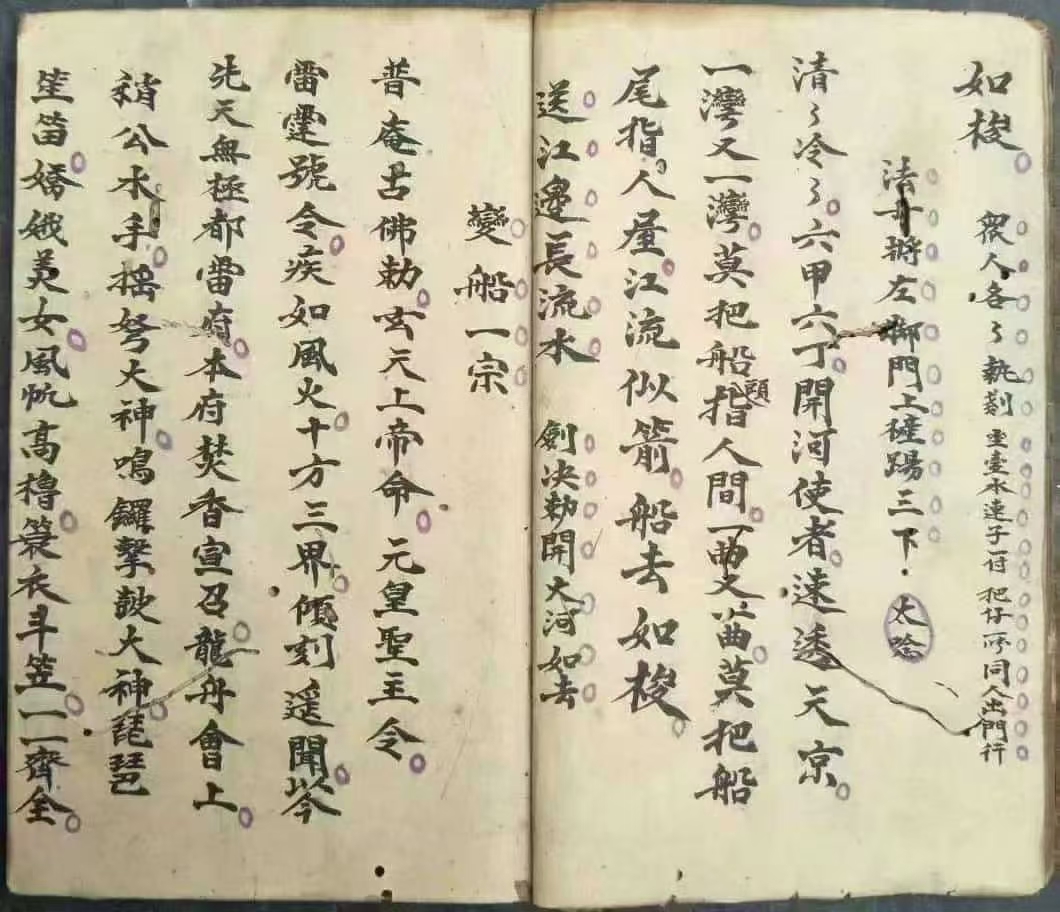 如梭
眾人各々執剳
同人出門行
左脚門上
三下
太唸
清々冷々六甲六丁開河使者速透天京
一灣又一灣莫把船頭指人間一曲又一曲莫把船
尾指人屋江流似箭船去如梭
送江邊長流水 劍決勅開大河如去
變船一宗
普庵古佛勅玄天上帝命元皇聖主令
雷霆號令疾如風火十方三界傾刻遥聞岺
先天無極都雷府本府焚香宣召龍舟會上
稍公水手揺弩大神鳴鑼擊鼓大神琵琶
笙笛嬌娥美女風帆高櫓簑衣斗笠一一齊全